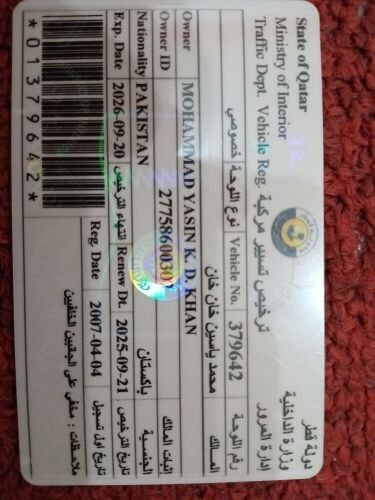 State of Qatar دولة قطر
Ministry of Interior وزارة الداخلية
Traffic Dept. Vehicle Reg. ترخيص تسيير مركبة إدارة المرور
خصوصي نوع اللوحة Vehicle No. 379642 رقم اللوحة
Owner محمد ياسين خان خان المـــالك
MOHAMMAD YASIN K. D. KHAN
Owner ID اثبات المالك
Nationality PAKISTAN باكستان الجنسية
Exp. Date 2026-09-20 انتهاء الترخيص Renew Dt. 2025-09-21 تاريخ الترخيص
Reg. Date 2007-04-04 تاريخ اول تسجيل
ملاحظات : مخفي على الجنبين الخلفين
*01379642*